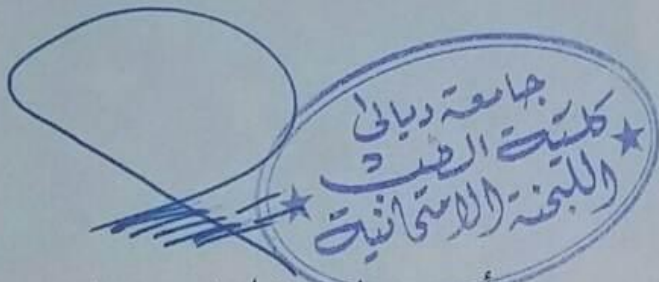 جامعة ديالى
كلية الطب
اللجنة الامتحانية